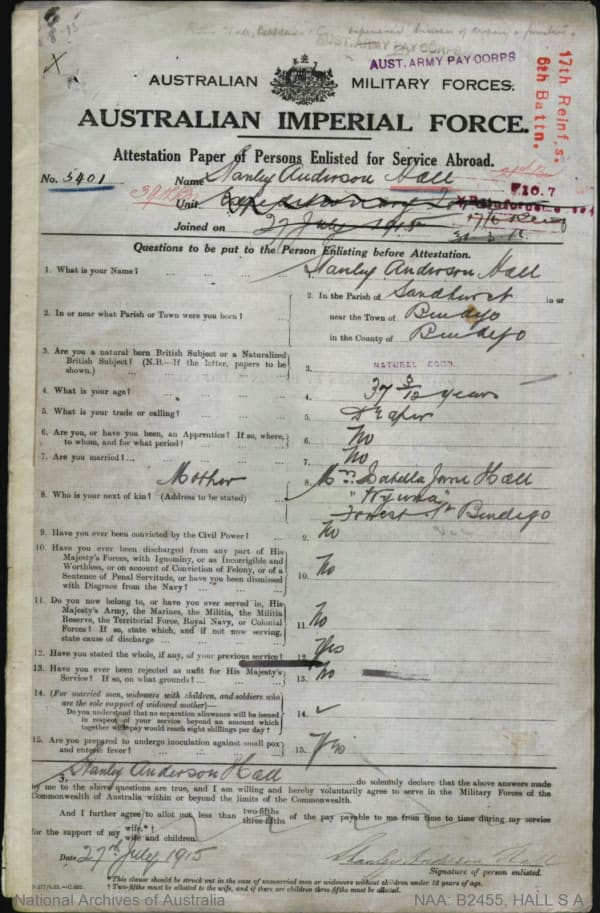 AUST. ARMY PAY CORPS
AUSTRALIAN MILITARY FORCES.
17th Reinfs.
6th Battn.
AUSTRALIAN IMPERIAL FORCE.
Attestation Paper of Persons Enlisted for Service Abroad.
No. 5401 Name Stanley Anderson Hall
Unit
Joined on 27 July 1915
Questions to be put to the Person Enlisting before Attestation.
1. What is your Name? ... 1. Stanley Anderson Hall
2. In or near what Parish or Town were you born? ... 2. In the Parish of Sandhurst in or
near the Town of Bendigo
in the County of Bendigo
3. Are you a natural born British Subject or a Naturalized British Subject? (N.B.—If the latter, papers to be shown.) ... 3. NATURAL BORN.
4. What is your age? ... 4. 37 8/12 years
5. What is your trade or calling? ... 5. Draper
6. Are you, or have you been, an Apprentice? If so, where, to whom, and for what period? ... 6. No
7. Are you married? ... 7. No
Mother
8. Who is your next of kin? (Address to be stated) ... 8. Mrs Isabella Hall
"Wyuna"
Forest St Bendigo
9. Have you ever been convicted by the Civil Power? ... 9. No
10. Have you ever been discharged from any part of His Majesty's Forces, with Ignominy, or as Incorrigible and Worthless, or on account of Conviction of Felony, or of a Sentence of Penal Servitude, or have you been dismissed with Disgrace from the Navy? ... 10. No
11. Do you now belong to, or have you ever served in, His Majesty's Army, the Marines, the Militia, the Militia Reserve, the Territorial Force, Royal Navy, or Colonial Forces? If so, state which, and if not now serving, state cause of discharge ... 11. No
12. Have you stated the whole, if any, of your previous service? 12. Yes
13. Have you ever been rejected as unfit for His Majesty's Service? If so, on what grounds? ... 13. No
14. (For married men, widowers with children, and soldiers who are the sole support of widowed mother)—
Do you understand that no separation allowance will be issued in respect of your service beyond an amount which together with pay would reach eight shillings per day? 14. ✓
15. Are you prepared to undergo inoculation against small pox and enteric fever? ... 15. Yes
I, Stanley Anderson Hall do solemnly declare that the above answers made
by me to the above questions are true, and I am willing and hereby voluntarily agree to serve in the Military Forces of the
Commonwealth of Australia within or beyond the limits of the Commonwealth.
And I further agree to allot not less than two-fifths three-fifths of the pay payable to me from time to time during my service
for the support of my wife.*†
wife and children.
Date 27th July 1915 Stanley Anderson Hall
Signature of person enlisted.
*This clause should be struck out in the case of unmarried men or widowers without children under 18 years of age.
†Two-fifths must be allotted to the wife, and if there are children three-fifths must be allotted.
National Archives of Australia NAA: B2455, HALL S A